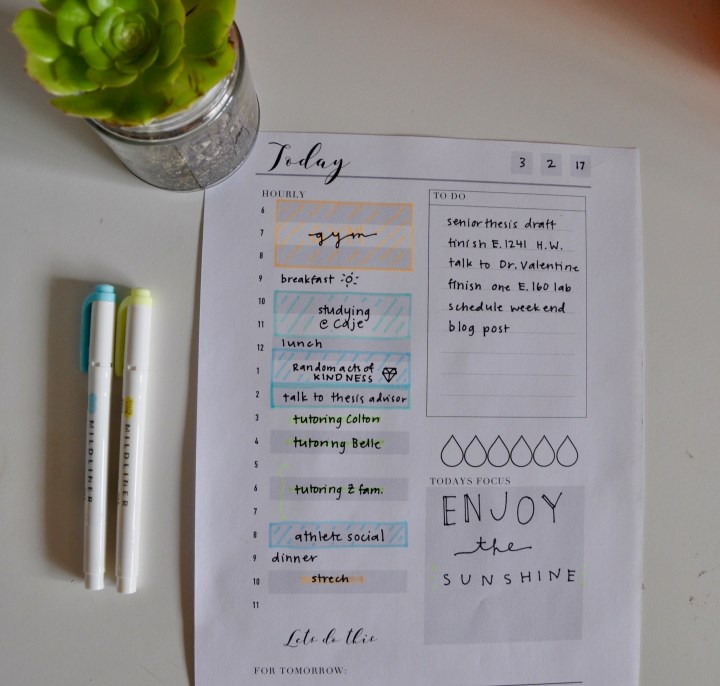 Today
3 2 17
HOURLY
6
7 gym
8
9 breakfast
10
studying
11 @ Coje
12 lunch
1 Random acts of
KINDNESS
2 talk to thesis advisor
3 tutoring Colton
4 tutoring Belle
5
6 tutoring Z fam.
7
8 athlete social
9 dinner
10 strech
11
Lets do this
FOR TOMORROW:
TO DO
senior thesis draft
finish E.1241 H.W.
talk to Dr. Valentine
finish one E.160 lab
schedule weekend
blog post
TODAYS FOCUS
ENJOY
the
SUNSHINE
MILDLINER
MILDLINER